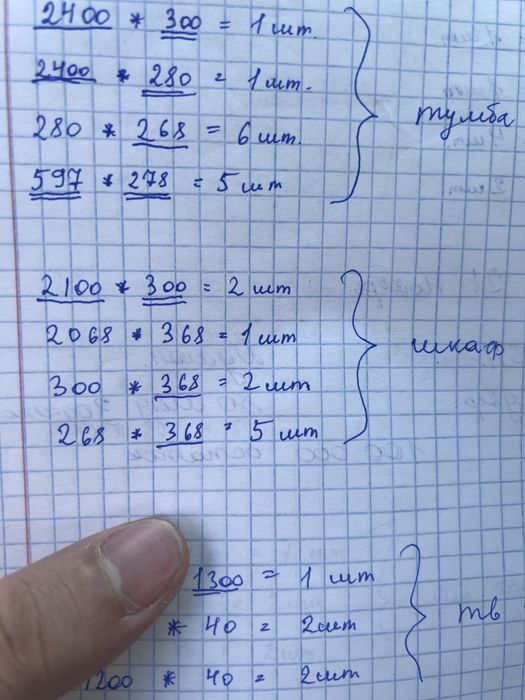 2400 * 300 = 1 шт.
2400 * 280 = 1 шт.
280 * 268 = 6 шт.
597 * 278 = 5 шт
тумба
2100 * 300 = 2 шт
2068 * 368 = 1 шт
300 * 368 = 2 шт
268 * 368 = 5 шт
шкаф
1300 = 1 шт
* 40 = 2 шт
1200 * 40 = 2 шт
тв